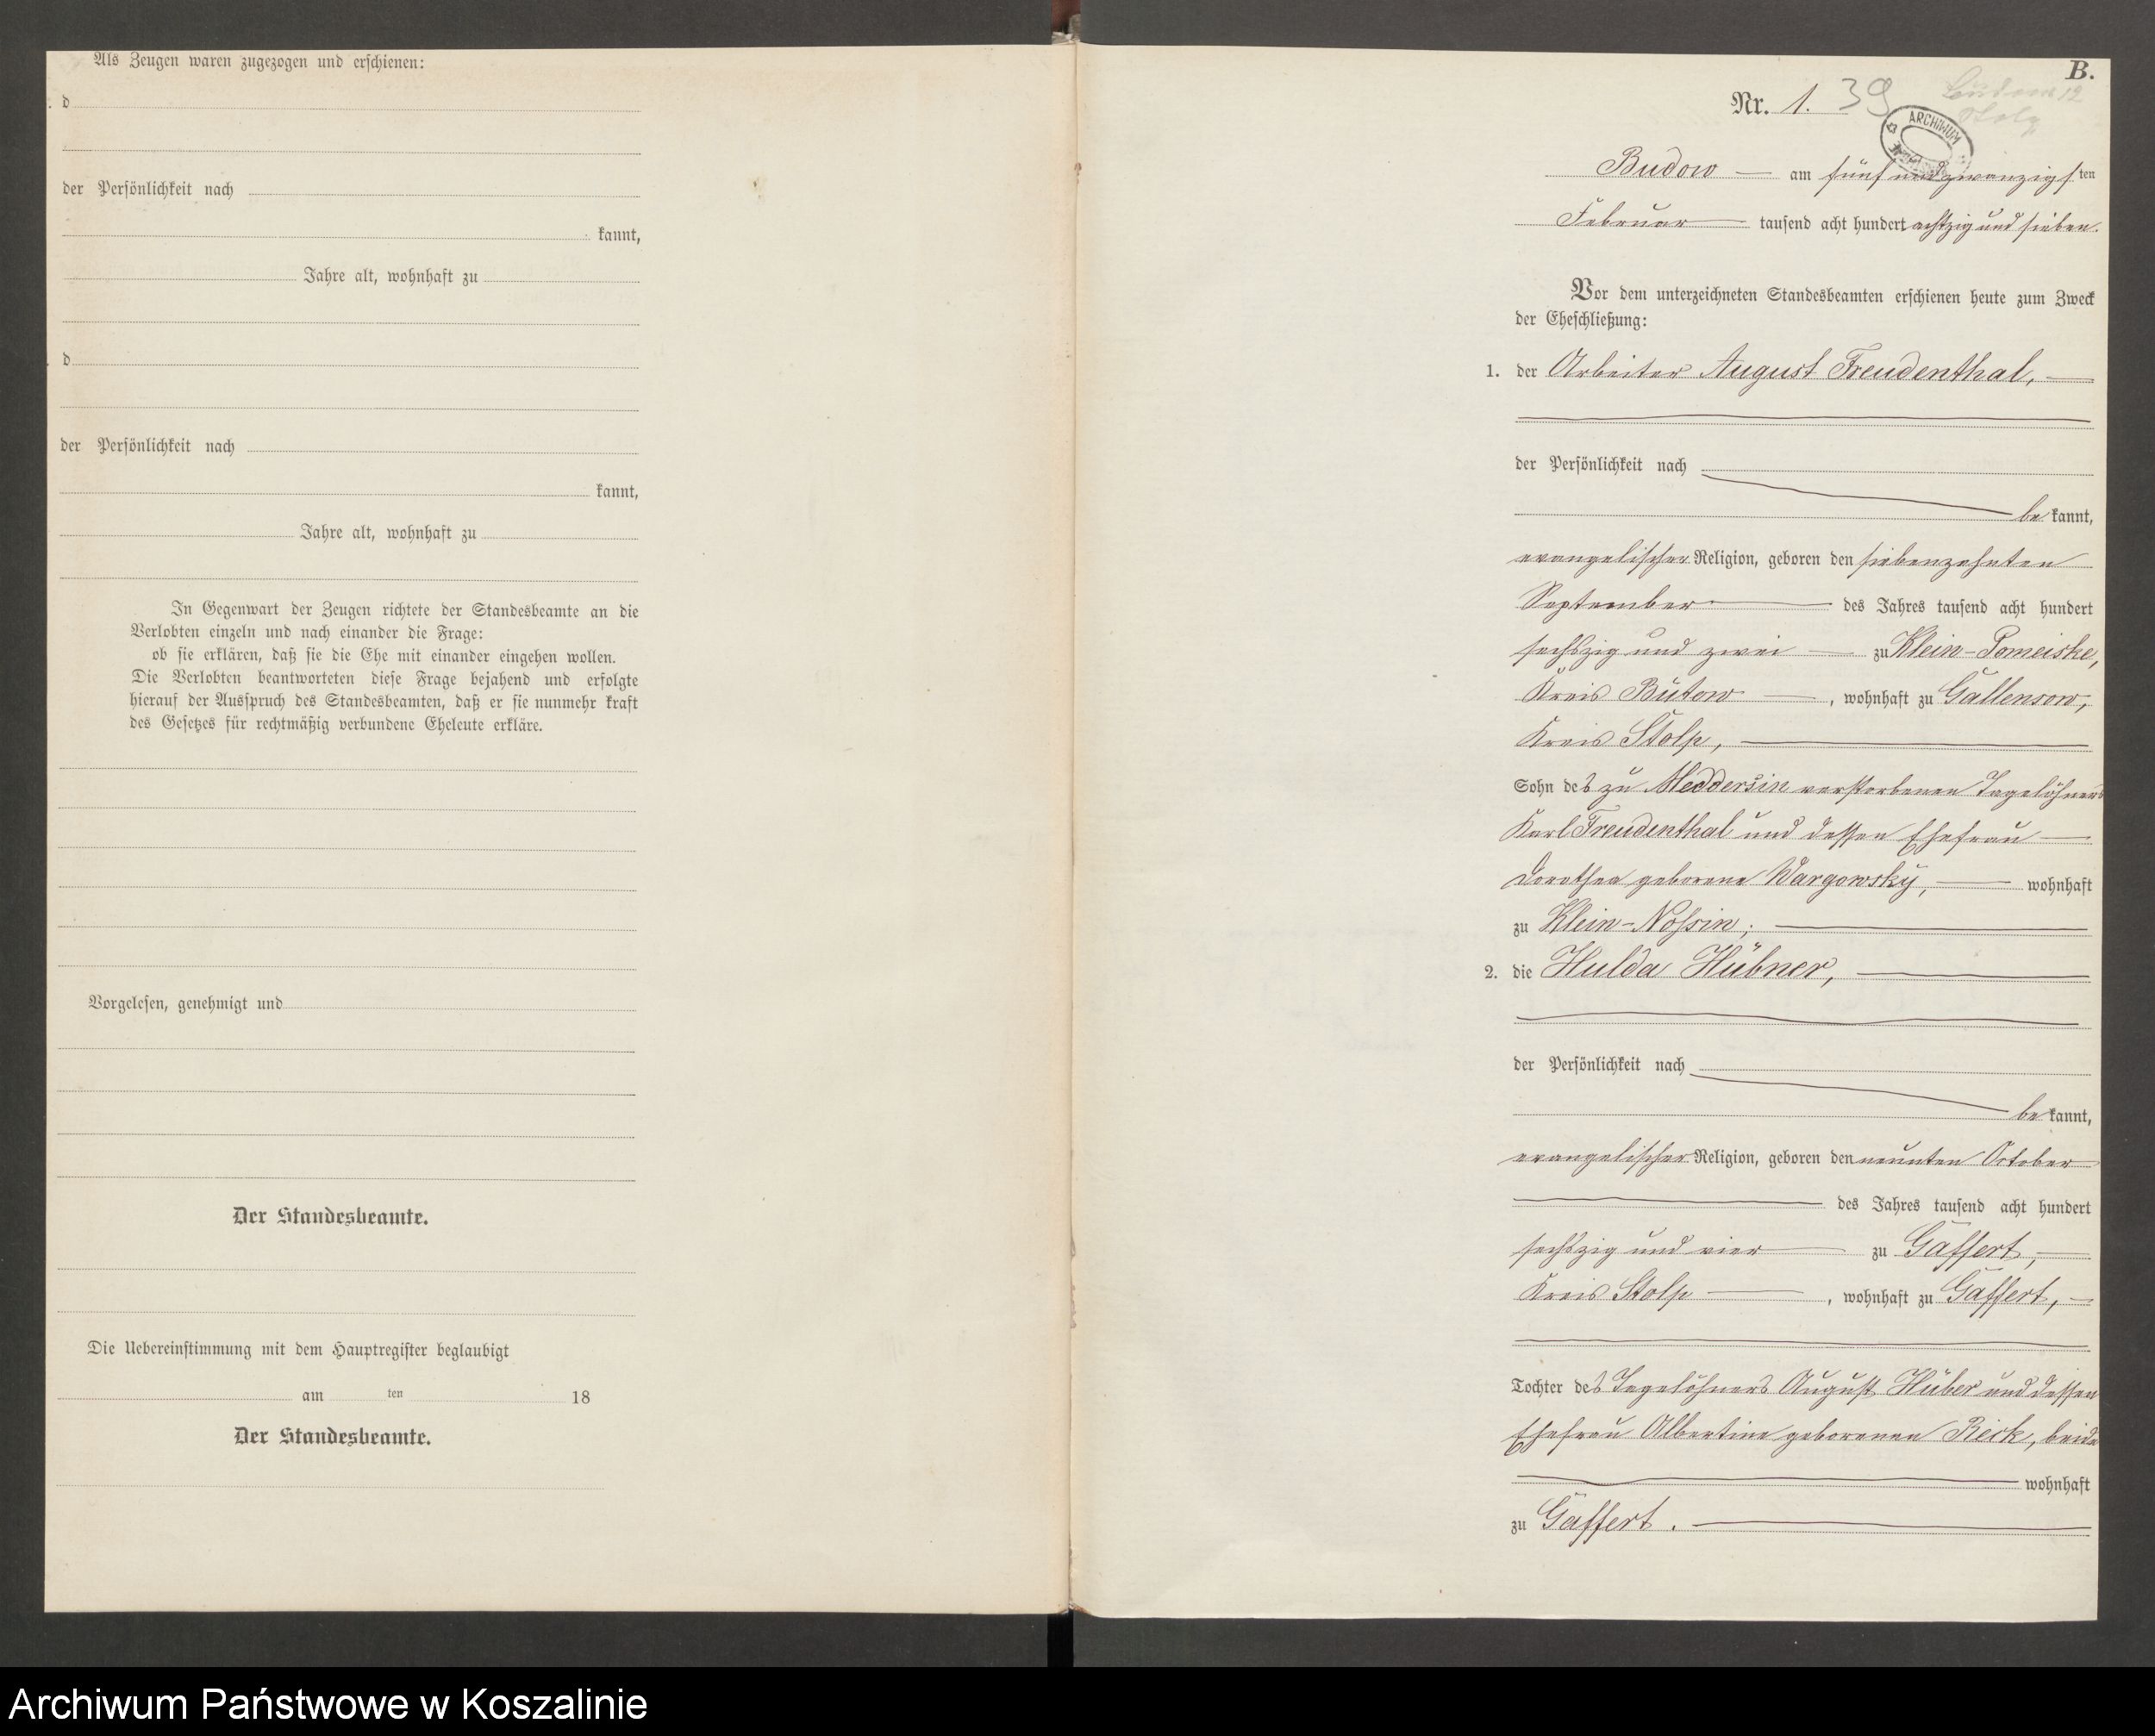 Als Zeugen waren zugezogen und erschienen:
d
der Persönlichkeit nach
kannt,
Jahre alt, wohnhaft zu
d
der Persönlichkeit nach
kannt,
Jahre alt, wohnhaft zu
In Gegenwart der Zeugen richtete der Standesbeamte an die
Verlobten einzeln und nach einander die Frage:
ob sie erklären, daß sie die Ehe mit einander eingehen wollen.
Die Verlobten beantworteten diese Frage bejahend und erfolgte
hierauf der Ausspruch des Standesbeamten, daß er sie nunmehr kraft
des Gesetzes für rechtmäßig verbundene Eheleute erkläre.
Vorgelesen, genehmigt und
Der Standesbeamte.
Die Uebereinstimmung mit dem Hauptregister beglaubigt
am ten 18
Der Standesbeamte.
B.
Nr. 1. 39
ARCHIWUM
Budow am fünf und zwanzigsten
Februar tausend acht hundert achtzig und sieben.
Vor dem unterzeichneten Standesbeamten erschienen heute zum Zweck
der Eheschließung:
1. der Arbeiter August Freudenthal,
der Persönlichkeit nach
be kannt,
evangelischer Religion, geboren den siebenzehnten
September des Jahres tausend acht hundert
sechszig und zwei zu Klein-Pomeiske,
Kreis Bütow, wohnhaft zu Gallensow,
Kreis Stolp,
Sohn des zu Meddersin verstorbenen Tagelöhners
Karl Freudenthal und dessen Ehefrau
Dorothea geborene Wargowsky, wohnhaft
zu Klein-Nossin;
2. die Hulda Hübner,
der Persönlichkeit nach
be kannt,
evangelischer Religion, geboren den neunten October
des Jahres tausend acht hundert
sechszig und vier zu Gaffert,
Kreis Stolp, wohnhaft zu Gaffert,
Tochter des Tagelöhners August Hüber und dessen
Ehefrau Albertine geborenen Rick, beide
wohnhaft
zu Gaffert.
Archiwum Państwowe w Koszalinie